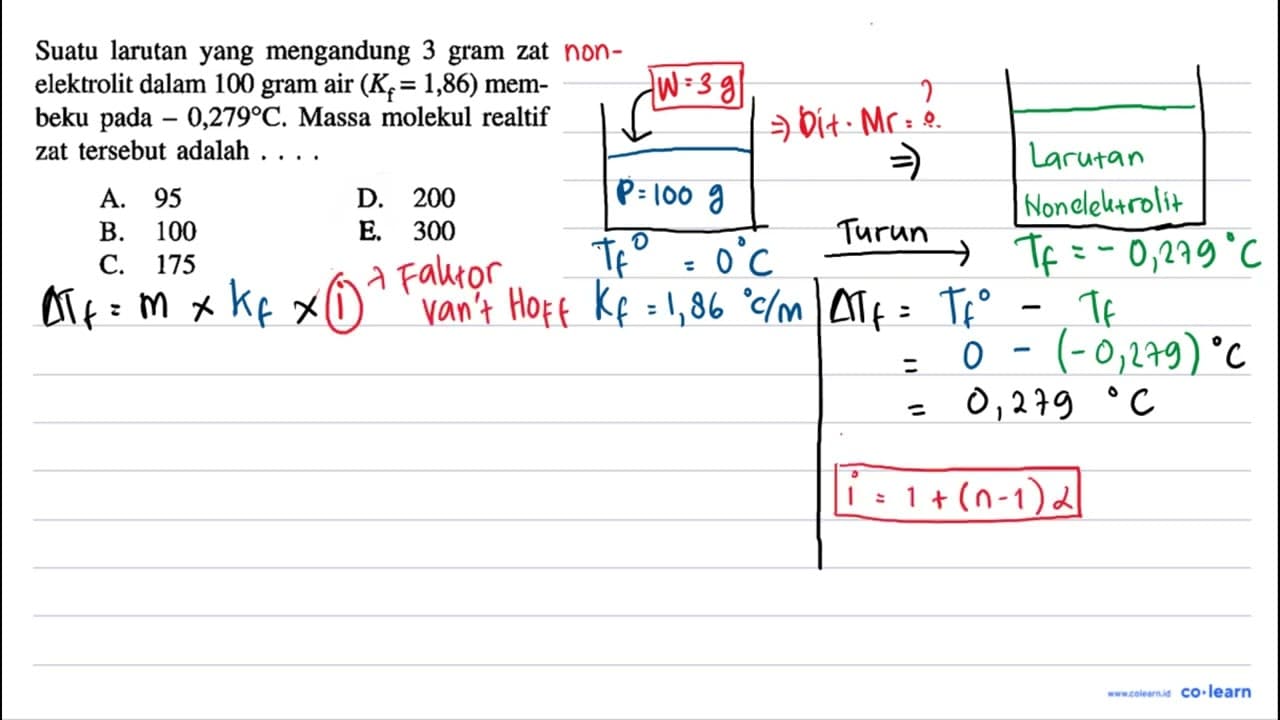 Suatu larutan yang mengandung 3 gram zat non-
elektrolit dalam 100 gram air (K_f = 1,86) mem-
beku pada – 0,279°C. Massa molekul realtif
zat tersebut adalah . . . .
A. 95
B. 100
C. 175
D. 200
E. 300
W = 3 g
P = 100 g
Tf° = 0°C
Kf = 1,86 °C/m
⇒ Dit. Mr = ?
?
⇒
Turun
Larutan
Nonelektrolit
Tf = - 0,279 °C
ΔTf = m x Kf x i → Faktor
van't Hoff
ΔTf = Tf° - Tf
= 0 - (-0,279) °C
= 0,279 °C
i = 1 + (n-1) α
www.colearn.id co·learn